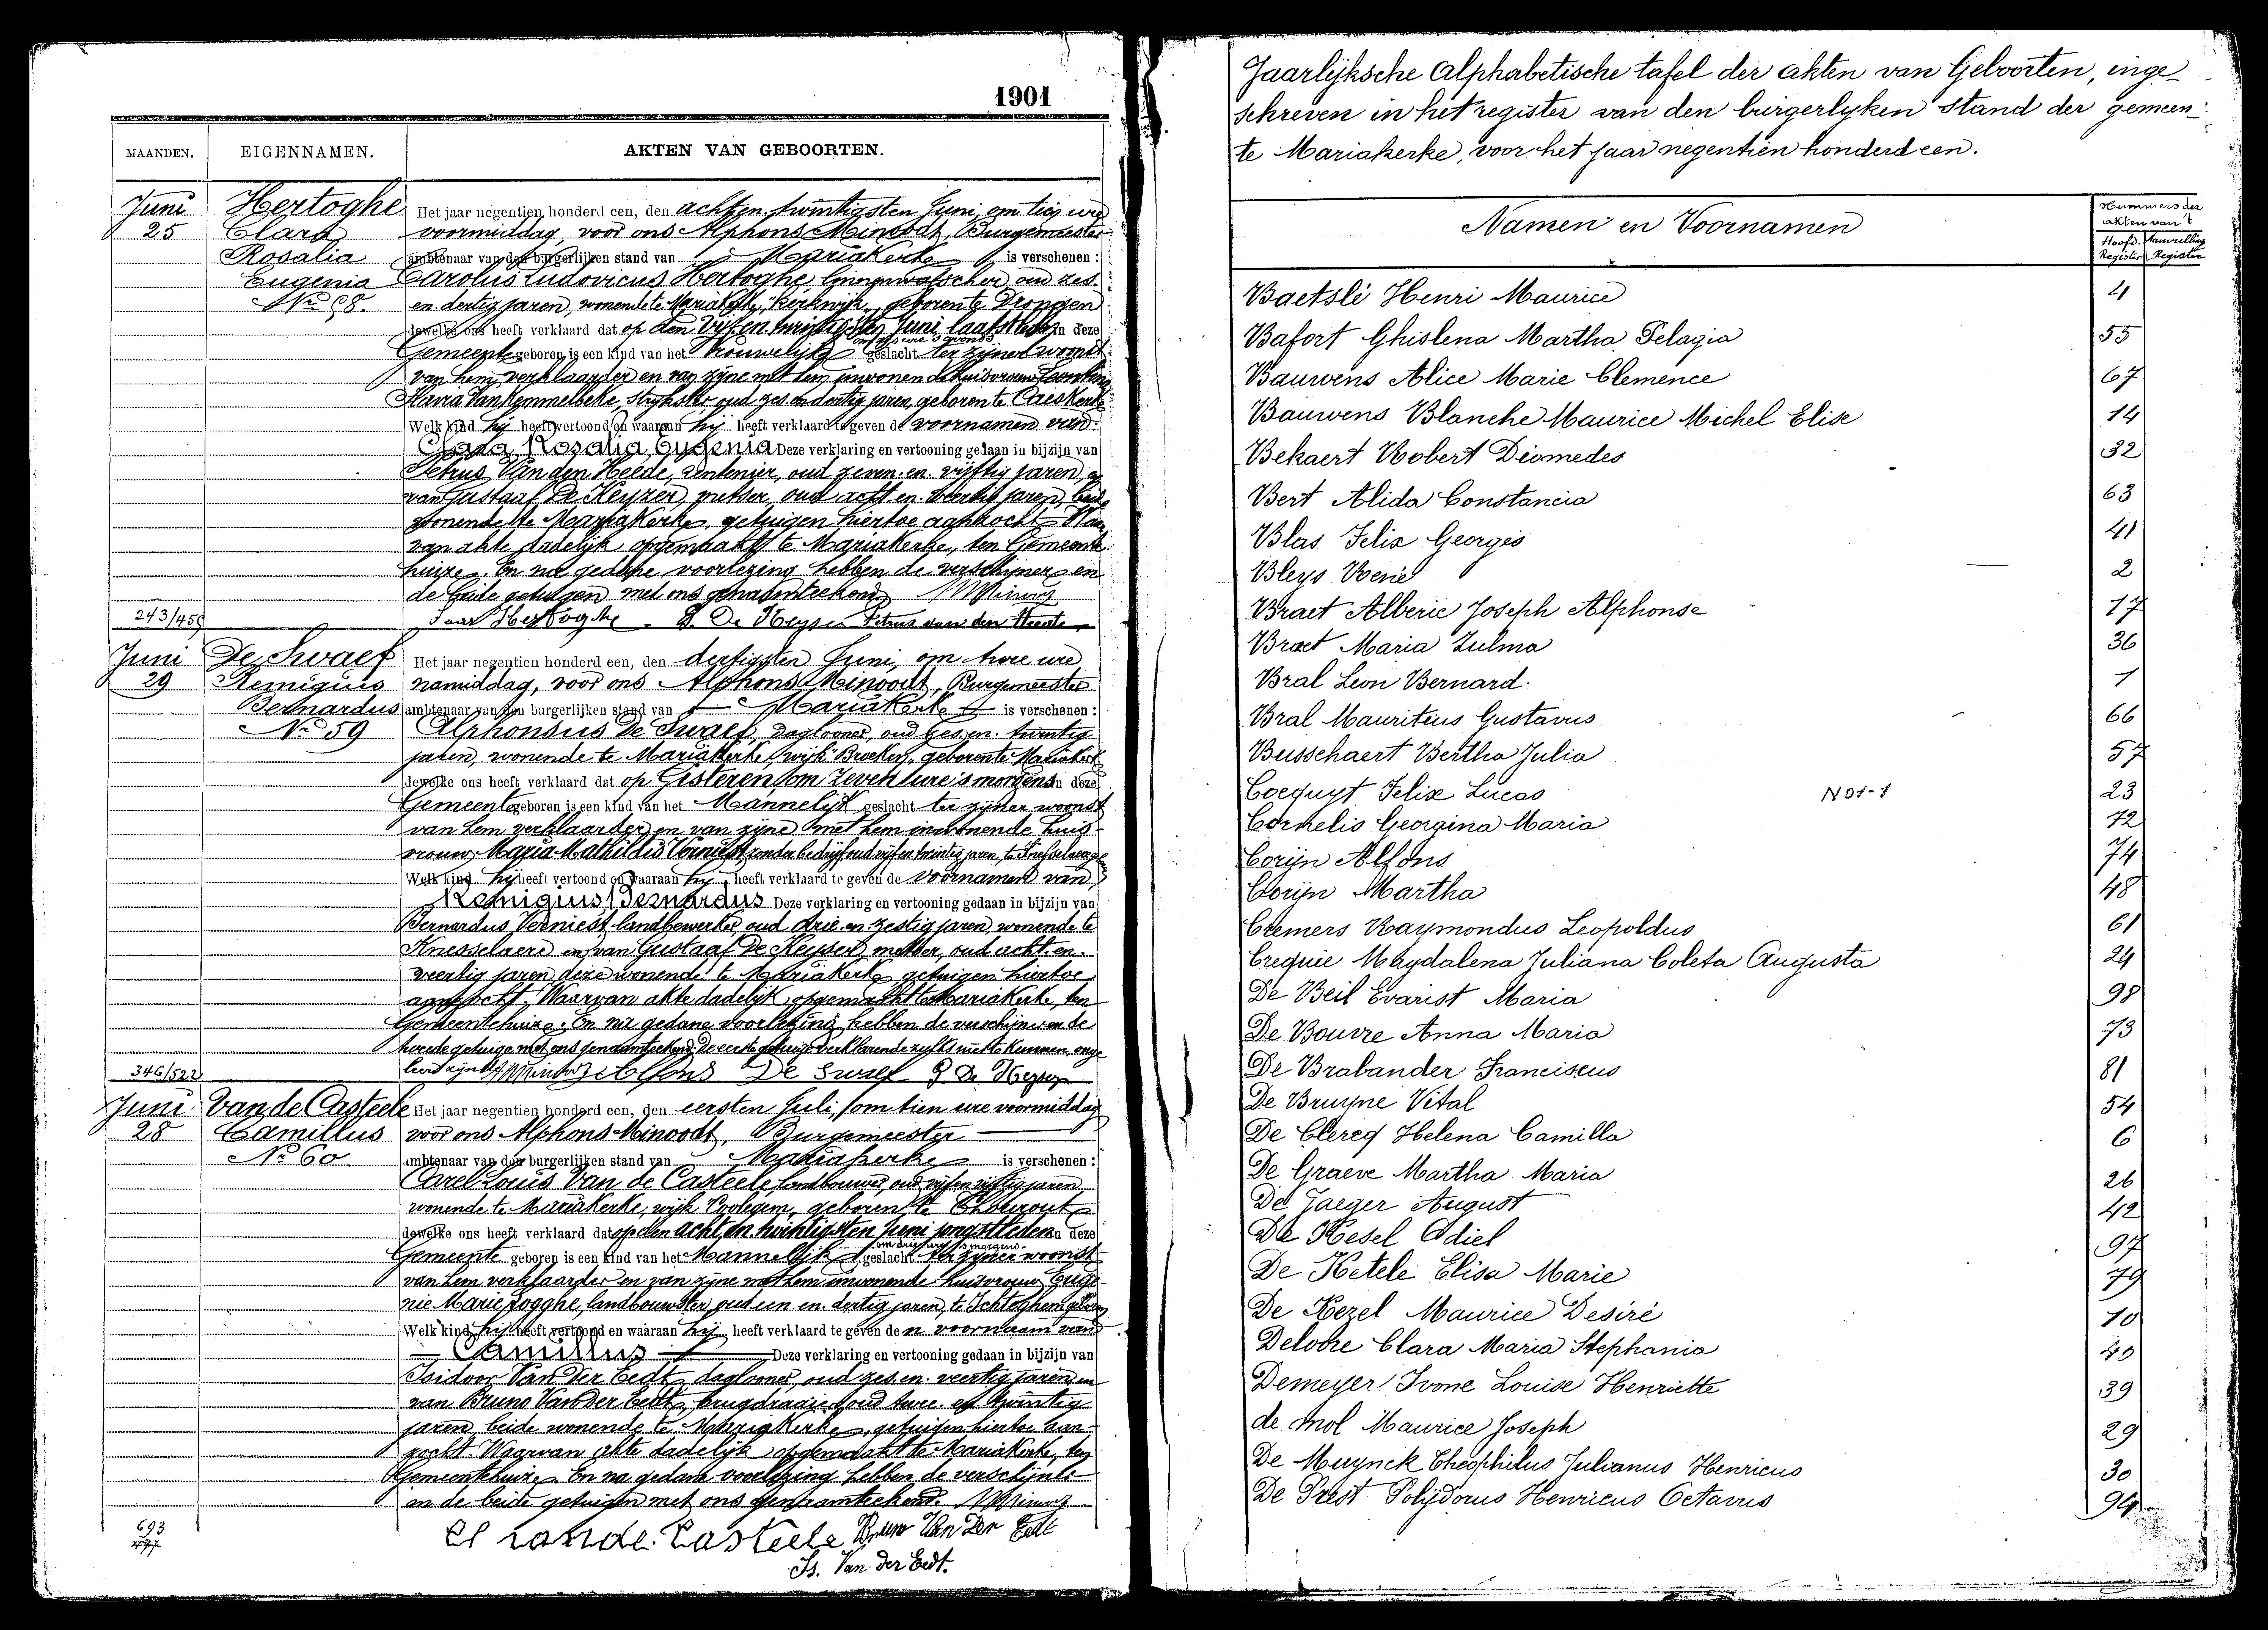 1901
MAANDEN. EIGENNAMEN. AKTEN VAN GEBOORTEN.
Juni
25
Hertoghe
Clara
Rosalia
Eugenia
No 58.
Het jaar negentien honderd een, den achten twintigsten Juni, om tien ure
voormiddag, voor ons Alphons Minoodt, Burgemeester
ambtenaar van den burgerlijken stand van Mariakerke is verschenen :
Carolus Ludovicus Hertoghe, oud zes
en dertig jaren, wonende te Mariakerke, Kerkwijk, geboren te Drongen
dewelke ons heeft verklaard dat op den vijf en twintigsten Juni laatstleden in deze
Gemeente geboren is een kind van het Vrouwelijk geslacht ter zijner woonst
van hem verklaarder en van zijne met hem inwonende huisvrouw
Maria Van Kemmelbeke, oud zes en dertig jaren, geboren te
Welk kind hij heeft vertoond en waaraan hij heeft verklaard te geven de voornamen van
Clara Rosalia Eugenia Deze verklaring en vertooning gedaan in bijzijn van
Petrus Van den Heede, rentenier, oud zeven en vijftig jaren, en
van Gustaaf De Keyzer, metser, oud acht en veertig jaren, beide
wonende te Mariakerke, getuigen hiertoe aanzocht. Waar
van akte dadelijk opgemaakt te Mariakerke, ten Gemeente
huize. En na gedane voorlezing hebben de verschijner en
de beide getuigen met ons genaamteekend AMinoodt
243/459
Hertoghe G. De Keyser Petrus van den Heede
Juni
29
De Swaef
Remigius
Bernardus
No 59
Het jaar negentien honderd een, den dertigsten Juni, om twee ure
namiddag, voor ons Alphons Minoodt, Burgemeester
ambtenaar van den burgerlijken stand van Mariakerke is verschenen :
Alphonsus De Swaef, daglooner, oud zes en twintig
jaren, wonende te Mariakerke, wijk Broeken, geboren te Mariakerke
dewelke ons heeft verklaard dat op Gisteren om zeven ure 's morgens in deze
Gemeente geboren is een kind van het Mannelijk geslacht ter zijner woonst
van hem verklaarder en van zijne met hem inwonende huis-
vrouw Maria Mathildis Verniest, zonder bedrijf, oud vijf en twintig jaren, te Knesselaere
Welk kind hij heeft vertoond en waaraan hij heeft verklaard te geven de voornamen van
Remigius Bernardus Deze verklaring en vertooning gedaan in bijzijn van
Bernardus Verniest, landbewerker, oud drie en zestig jaren, wonende te
Knesselaere en van Gustaaf De Keyser, metser, oud acht en
veertig jaren, deze wonende te Mariakerke getuigen hiertoe
aanzocht. Waarvan akte dadelijk opgemaakt te Mariakerke, ten
Gemeentehuize. En na gedane voorlezing hebben de verschijner en de
tweede getuige met ons genaamteekend, De eerste getuige verklarende zulks niet te kunnen, onge
leerd zijnde AMinoodt Alfons De Swaef G De Keyser
346/522
Juni
28
Van de Casteele
Camillus
No 60
Het jaar negentien honderd een, den eersten Juli, om tien ure voormiddag
voor ons Alphons Minoodt, Burgemeester
ambtenaar van den burgerlijken stand van Mariakerke is verschenen :
Carel Louis Van de Casteele, landbouwer, oud vijf en vijftig jaren,
wonende te Mariakerke, wijk Poolegem, geboren te Ethewout
dewelke ons heeft verklaard dat op den acht en twintigsten Juni jongstleden in deze
Gemeente geboren is een kind van het Mannelijk geslacht ter zijner woonst
van hem verklaarder en van zijne met hem inwonende huisvrouw Euge-
nie Marie Jogghe, landbouwster, oud een en dertig jaren, te Ichteghem geboren
Welk kind hij heeft vertoond en waaraan hij heeft verklaard te geven den voornaam van
Camillus Deze verklaring en vertooning gedaan in bijzijn van
Isidoor Van Der Eedt, daglooner, oud zes en veertig jaren, en
van Bruno Van der Eedt, brugdraaier, oud twee en twintig
jaren, beide wonende te Mariakerke, getuigen hiertoe aan-
zocht. Waarvan akte dadelijk opgemaakt te Mariakerke, ten
Gemeentehuize. En na gedane voorlezing hebben de verschijner
en de beide getuigen met ons genaamteekend AMinoodt
693
Cl vande Casteele Bruno Van Der Eedt
Is. Van der Eedt.
Jaarlijksche Alphabetische tafel der akten van Geboorten, inge-
schreven in het register van den burgerlyken stand der gemeen-
te Mariakerke, voor het jaar negentien honderd een.
Namen en Voornamen
Nummers der
akten van 't
Hoofd. Register Aanvulling Register
Baetslé Henri Maurice 4
Bafort Ghislena Martha Pelagia 55
Bauwens Alice Marie Clemence 67
Bauwens Blanche Maurice Michel Elise 14
Bekaert Robert Diomedes 32
Bert Alida Constancia 63
Blas Felix Georges 41
Bleys René 2
Braet Alberic Joseph Alphonse 17
Braet Maria Zulma 36
Bral Leon Bernard. 1
Bral Mauritius Gustavus 66
Busschaert Bertha Julia 57
Cocquyt Felix Lucas NO1-1 23
Cornelis Georgina Maria 72
Corijn Alfons 74
Corijn Martha 48
Cremers Raymondus Leopoldus 61
Crequie Magdalena Juliana Coleta Augusta 24
De Beil Evarist Maria 98
De Bouvre Anna Maria 73
De Brabander Franciscus 81
De Bruyne Vital 54
De Clercq Helena Camilla 6
De Graeve Martha Maria 26
De Jaeger August 42
De Kesel Odiel 97
De Ketele Elisa Marie 79
De Kezel Maurice Desiré 10
Delobre Clara Maria Stephania 40
Demeyer Ivone Louise Henriette 39
de Mol Maurice Joseph 29
De Muynck Theophilus Julianus Henricus 30
De Prest Polydorus Henricus Octavus 94